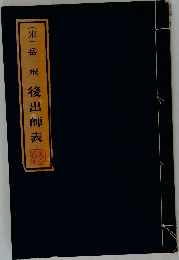 （宋）岳飛 後出師表